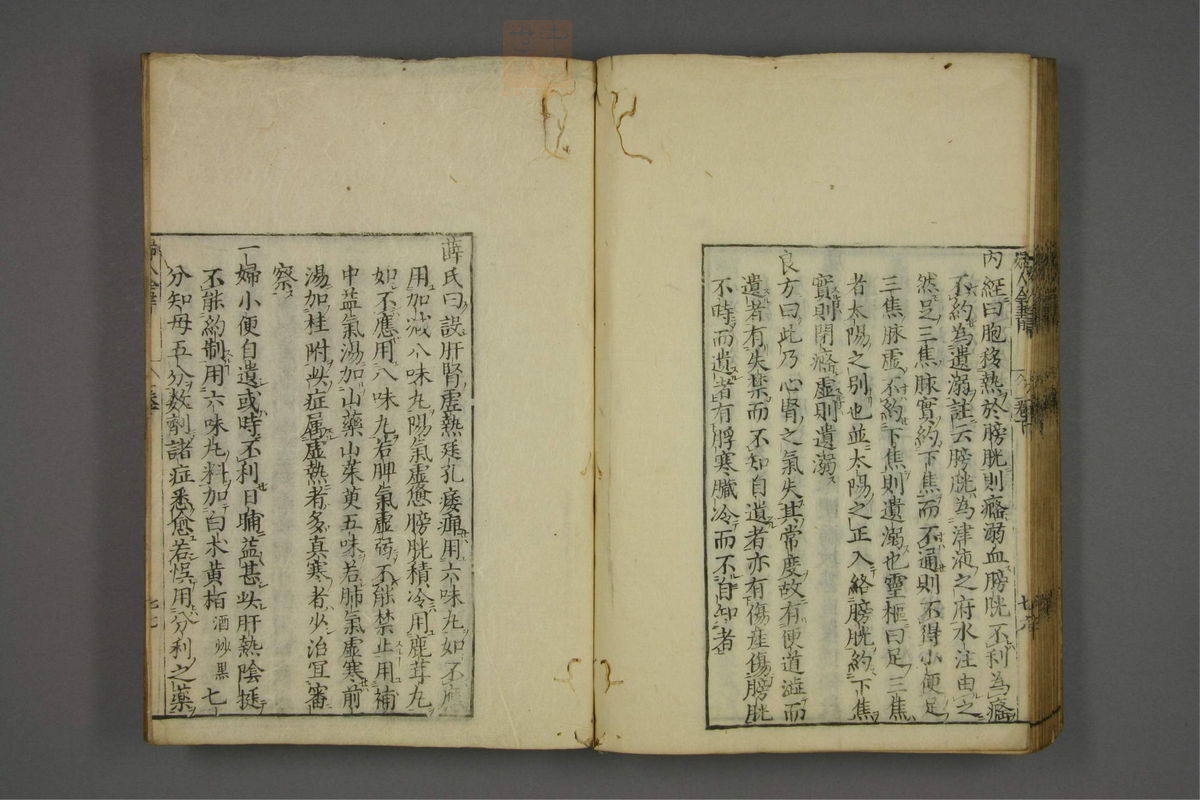 內經曰胞移熱於膀胱則癃溺血膀胱不利為癃
不約為遺溺註云膀胱為津液之府水注由之
然足三焦脉實約下焦而不通則不得小便足
三焦脉虛不約下焦則遺溺也靈樞曰足三焦
者太陽之別也並太陽之正入絡膀胱約下焦
實則閉癃虛則遺溺
良方曰此乃心腎之氣失其常度故有便道澁而
遺者有失禁而不知自遺者亦有傷產傷膀胱
不時而遺者有脬寒臟冷而不自知者
薛氏曰設肝腎虛熱廷孔痿痺用六味丸如不應
用加減八味丸陽氣虛憊膀胱積冷用鹿茸丸
如不應用八味丸若脾氣虛弱不能禁止用補
中益氣湯加山藥山茱萸五味若肺氣虛寒前
湯加桂附此症属虛熱者多真寒者少治宜審
察
一婦小便自遺或時不利日晡益甚此肝熱陰挺
不能約制用六味丸料加白朮黃栢酒炒黑七
分知母五分數劑諸症悉愈若悞用分利之藥